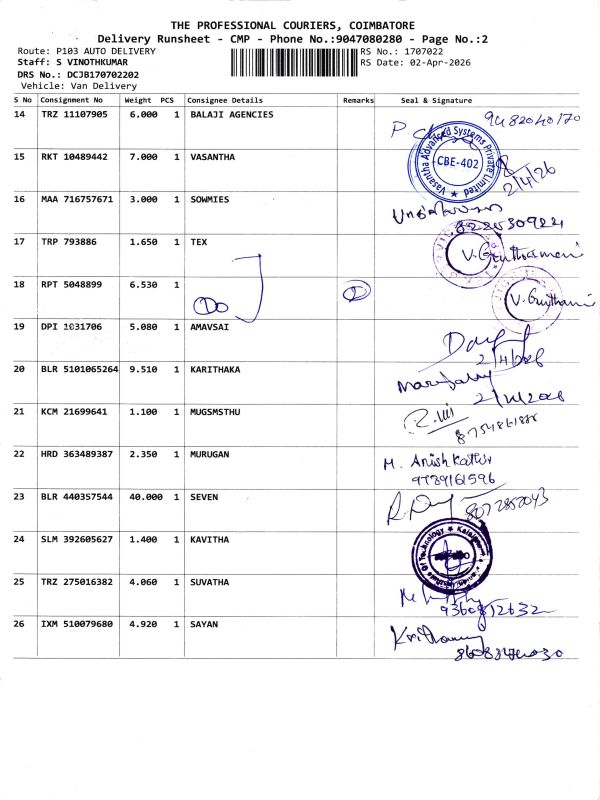 THE PROFESSIONAL COURIERS, COIMBATORE
Delivery Runsheet - CMP - Phone No.:9047080280 - Page No.:2
Route: P103 AUTO DELIVERY
RS No.: 1707022
Staff: S VINOTHKUMAR
RS Date: 02-Apr-2026
DRS No.: DCJB170702202
Vehicle: Van Delivery
S No Consignment No Weight PCS Consignee Details Remarks Seal & Signature
14 TRZ 11107905 6.000 1 BALAJI AGENCIES
15 RKT 10489442 7.000 1 VASANTHA
Vasantha Advanced Systems Private Limited
CBE-402
2/4/26
16 MAA 716757671 3.000 1 SOWMIES
17 TRP 793886 1.650 1 TEX
18 RPT 5048899 6.530 1
Do
2
19 DPI 1031706 5.080 1 AMAVSAI
20 BLR 5101065264 9.510 1 KARITHAKA
21 KCM 21699641 1.100 1 MUGSMSTHU
22 HRD 363489387 2.350 1 MURUGAN
M. Anish Kathir
9789161596
23 BLR 440357544 40.000 1 SEVEN
8072852043
24 SLM 392605627 1.400 1 KAVITHA
25 TRZ 275016382 4.060 1 SUVATHA
26 IXM 510079680 4.920 1 SAYAN